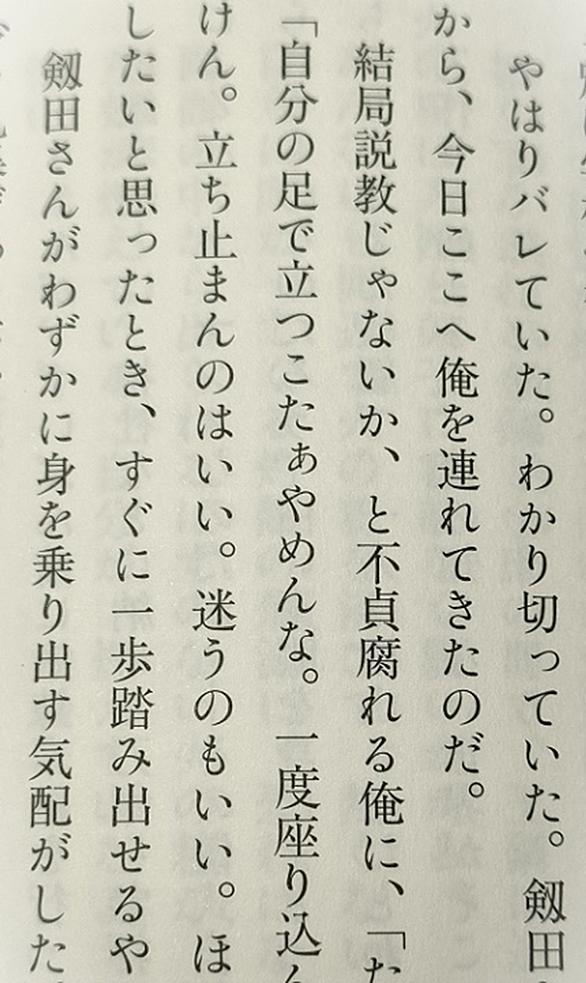 やはりバレていた。わかり切っていた。剱田
から、今日ここへ俺を連れてきたのだ。
結局説教じゃないか、と不貞腐れる俺に、「た
「自分の足で立つこたぁやめんな。一度座り込ん
けん。立ち止まんのはいい。迷うのもいい。ほ
したいと思ったとき、すぐに一歩踏み出せるや
剱田さんがわずかに身を乗り出す気配がした。